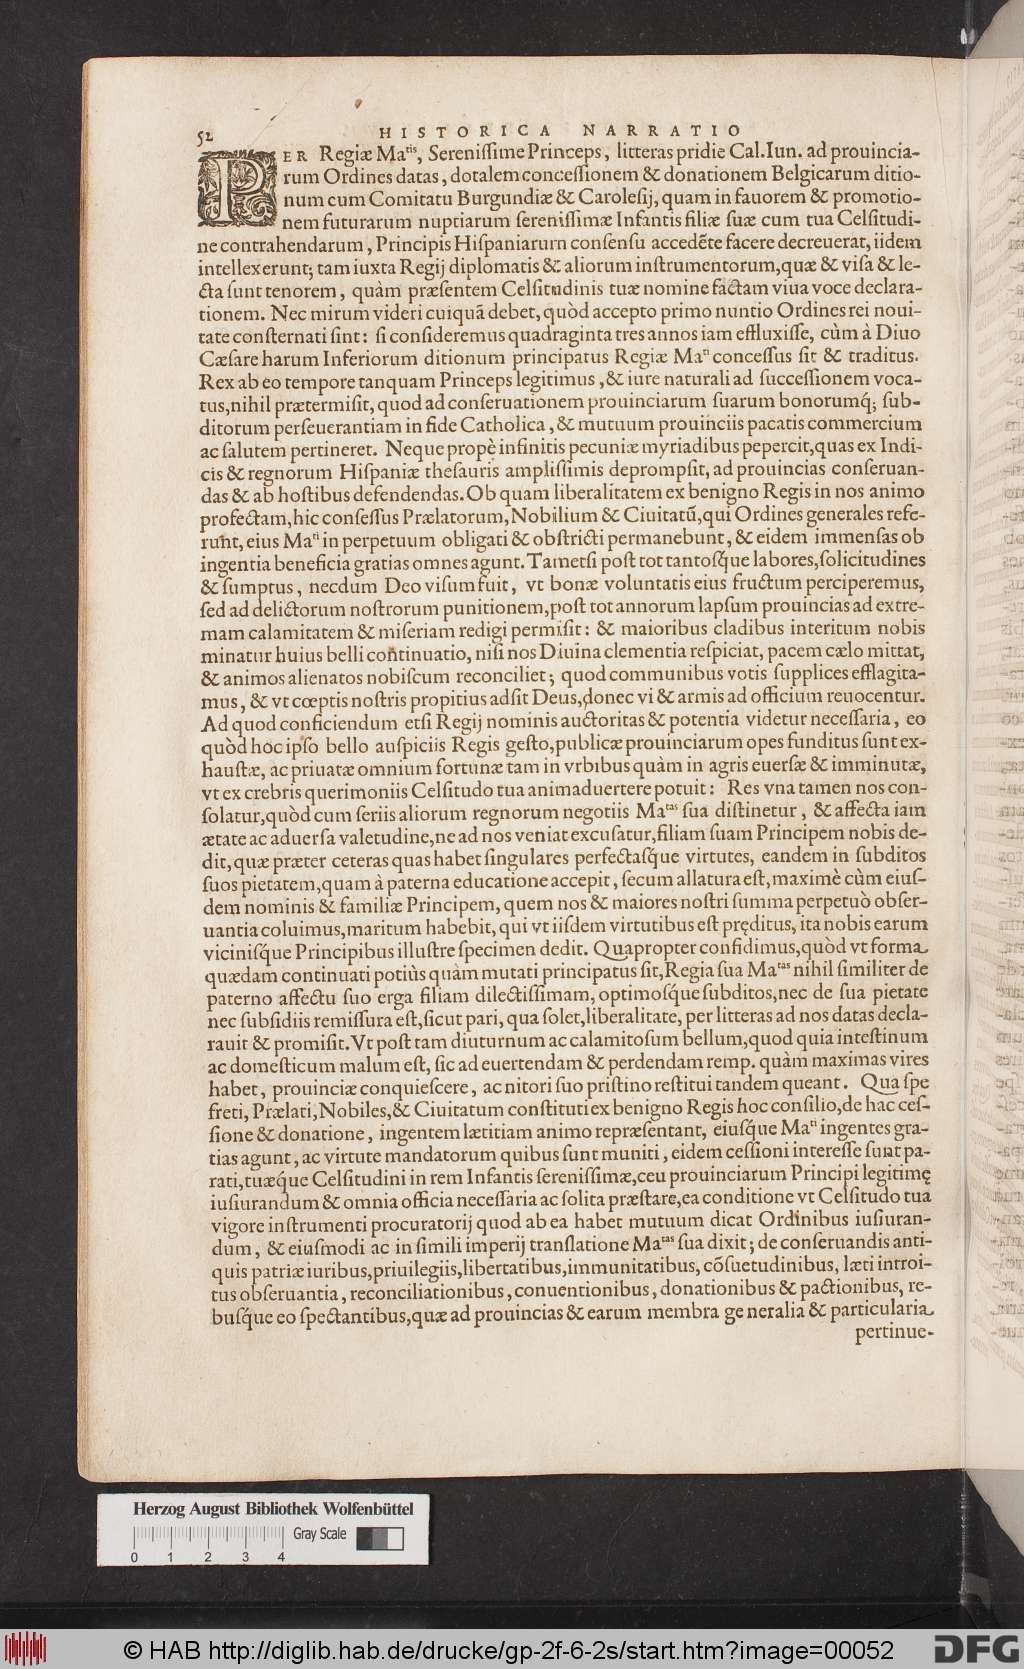 52 HISTORICA NARRATIO
PER Regiæ Maᵗⁱˢ, Sereniſſime Princeps, litteras pridie Cal. Iun. ad prouincia-
rum Ordines datas, dotalem conceſſionem & donationem Belgicarum ditio-
num cum Comitatu Burgundiæ & Caroleſij, quam in fauorem & promotio-
nem futurarum nuptiarum ſereniſſimæ Infantis filiæ ſuæ cum tua Celſitudi-
ne contrahendarum, Principis Hiſpaniarum conſenſu accedẽte facere decreuerat, iidem
intellexerunt; tam iuxta Regij diplomatis & aliorum inſtrumentorum, quæ & viſa & le-
cta ſunt tenorem, quàm præſentem Celſitudinis tuæ nomine factam viua voce declara-
tionem. Nec mirum videri cuiquã debet, quòd accepto primo nuntio Ordines rei noui-
tate conſternati ſint: ſi conſideremus quadraginta tres annos iam effluxiſſe, cùm à Diuo
Cæſare harum Inferiorum ditionum principatus Regiæ Maᵗⁱ conceſſus ſit & traditus.
Rex ab eo tempore tanquam Princeps legitimus, & iure naturali ad ſucceſſionem voca-
tus, nihil prætermiſit, quod ad conſeruationem prouinciarum ſuarum bonorumq́; ſub-
ditorum perſeuerantiam in fide Catholica, & mutuum prouinciis pacatis commercium
ac ſalutem pertineret. Neque propè infinitis pecuniæ myriadibus pepercit, quas ex Indi-
cis & regnorum Hiſpaniæ theſauris ampliſſimis deprompſit, ad prouincias conſeruan-
das & ab hoſtibus defendendas. Ob quam liberalitatem ex benigno Regis in nos animo
profectam, hic conſeſſus Prælatorum, Nobilium & Ciuitatũ, qui Ordines generales refe-
runt, eius Maᵗⁱ in perpetuum obligati & obſtricti permanebunt, & eidem immenſas ob
ingentia beneficia gratias omnes agunt. Tametſi poſt tot tantoſq́ue labores, ſolicitudines
& ſumptus, necdum Deo viſum fuit, vt bonæ voluntatis eius fructum perciperemus,
ſed ad delictorum noſtrorum punitionem, poſt tot annorum lapſum prouincias ad extre-
mam calamitatem & miſeriam redigi permiſit: & maioribus cladibus interitum nobis
minatur huius belli continuatio, niſi nos Diuina clementia reſpiciat, pacem cælo mittat,
& animos alienatos nobiſcum reconciliet; quod communibus votis ſupplices efflagita-
mus, & vt cœptis noſtris propitius adſit Deus, donec vi & armis ad officium reuocentur.
Ad quod conficiendum etſi Regij nominis auctoritas & potentia videtur neceſſaria, eo
quòd hoc ipſo bello auſpiciis Regis geſto, publicæ prouinciarum opes funditus ſunt ex-
hauſtæ, ac priuatæ omnium fortunæ tam in vrbibus quàm in agris euerſæ & imminutæ,
vt ex crebris querimoniis Celſitudo tua animaduertere potuit: Res vna tamen nos con-
ſolatur, quòd cum ſeriis aliorum regnorum negotiis Maᵗᵃˢ ſua diſtinetur, & affecta iam
ætate ac aduerſa valetudine, ne ad nos veniat excuſatur, filiam ſuam Principem nobis de-
dit, quæ præter ceteras quas habet ſingulares perfectaſq́ue virtutes, eandem in ſubditos
ſuos pietatem, quam à paterna educatione accepit, ſecum allatura eſt, maximè cùm eiuſ-
dem nominis & familiæ Principem, quem nos & maiores noſtri ſumma perpetuò obſer-
uantia coluimus, maritum habebit, qui vt iiſdem virtutibus eſt pręditus, ita nobis earum
viciniſq́ue Principibus illuſtre ſpecimen dedit. Quapropter confidimus, quòd vt forma
quædam continuati potiùs quàm mutati principatus ſit, Regia ſua Maᵗᵃˢ nihil ſimiliter de
paterno affectu ſuo erga filiam dilectiſſimam, optimoſq́ue ſubditos, nec de ſua pietate
nec ſubſidiis remiſſura eſt, ſicut pari, qua ſolet, liberalitate, per litteras ad nos datas decla-
rauit & promiſit. Vt poſt tam diuturnum ac calamitoſum bellum, quod quia inteſtinum
ac domeſticum malum eſt, ſic ad euertendam & perdendam remp. quàm maximas vires
habet, prouinciæ conquieſcere, ac nitori ſuo priſtino reſtitui tandem queant. Qua ſpe
freti, Prælati, Nobiles, & Ciuitatum conſtituti ex benigno Regis hoc conſilio, de hac ceſ-
ſione & donatione, ingentem lætitiam animo repræſentant, eiuſq́ue Maᵗⁱ ingentes gra-
tias agunt, ac virtute mandatorum quibus ſunt muniti, eidem ceſſioni intereſſe ſunt pa-
rati, tuæq́ue Celſitudini in rem Infantis ſereniſſimæ, ceu prouinciarum Principi legitimę
iuſiurandum & omnia officia neceſſaria ac ſolita præſtare, ea conditione vt Celſitudo tua
vigore inſtrumenti procuratorij quod ab ea habet mutuum dicat Ordinibus iuſiuran-
dum, & eiuſmodi ac in ſimili imperij tranſlatione Maᵗᵃˢ ſua dixit; de conſeruandis anti-
quis patriæ iuribus, priuilegiis, libertatibus, immunitatibus, cõſuetudinibus, læti introi-
tus obſeruantia, reconciliationibus, conuentionibus, donationibus & pactionibus, re-
buſq́ue eo ſpectantibus, quæ ad prouincias & earum membra ge neralia & particularia
pertinue-
Herzog August Bibliothek Wolfenbüttel
0 1 2 3 4 Gray Scale
© HAB http://diglib.hab.de/drucke/gp-2f-6-2s/start.htm?image=00052 DFG